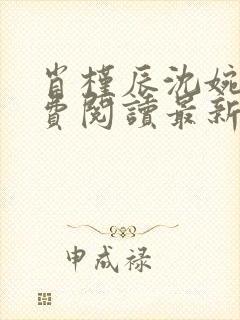 肖槿辰沈婉
費閱讀最新
申成禄